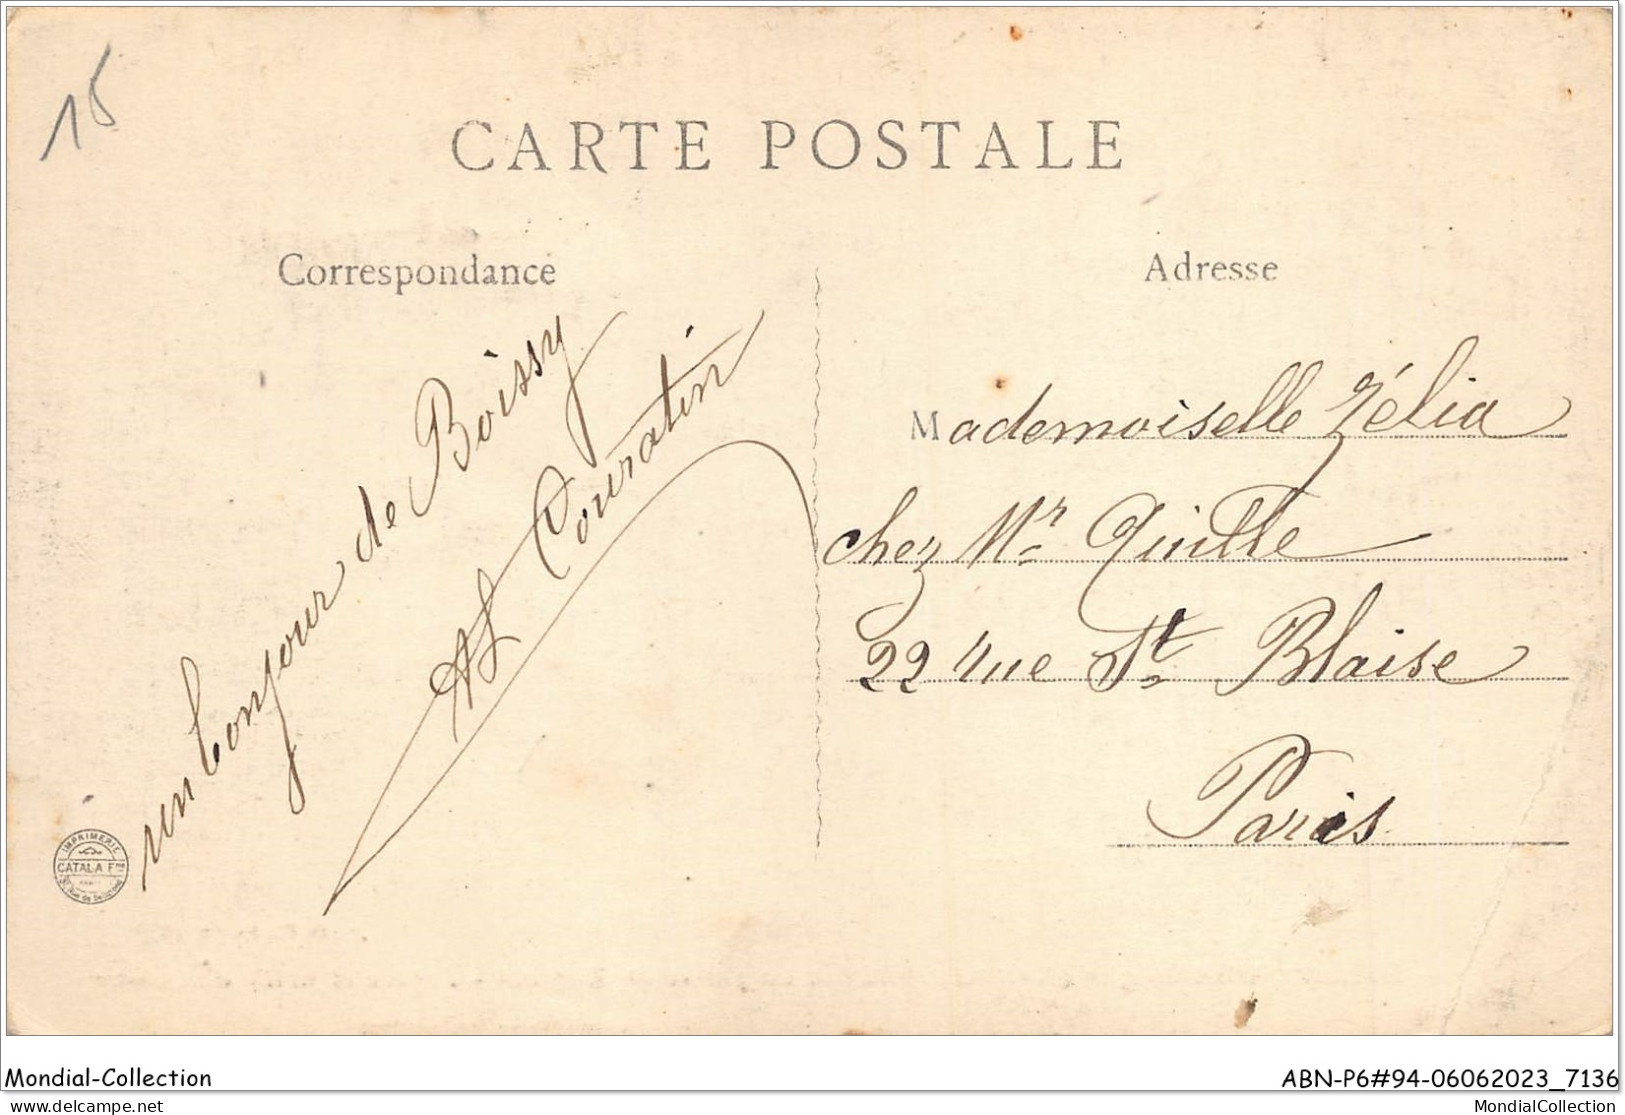 15
CARTE POSTALE
Correspondance
Adresse
un bonjour de Boissy
AL Couratin
Mademoiselle Zélia
chez Mr Quille
22 rue St Blaise
Paris
IMPRIMERIE
CATALA Fres
PARIS
Mondial-Collection
ABN-P6#94-06062023_7136
www.delcampe.net
MondialCollection